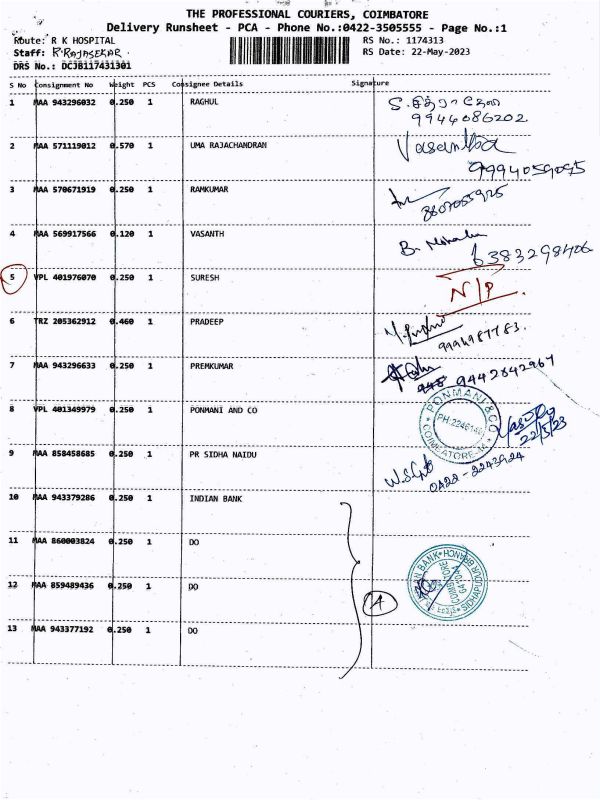 THE PROFESSIONAL COURIERS, COIMBATORE
Delivery Runsheet - PCA - Phone No.:0422-3505555 - Page No.:1
Route: R K HOSPITAL
RS No.: 1174313
Staff: R.RAJASEKAR
RS Date: 22-May-2023
DRS No.: DCJB117431301
S No Consignment No Weight PCS Consignee Details Signature
1 MAA 943296032 0.250 1 RAGHUL
9944086202
2 MAA 571119012 0.570 1 UMA RAJACHANDRAN Vasantha
9994059095
3 MAA 570671919 0.250 1 RAMKUMAR
8807055925
4 MAA 569917566 0.120 1 VASANTH B.
6383298406
5 VPL 401976070 0.250 1 SURESH N/P
6 TRZ 205362912 0.460 1 PRADEEP
7 MAA 943296633 0.250 1 PREMKUMAR
9442842967
8 VPL 401349979 0.250 1 PONMANI AND CO
PONMANI & CO
22/5/23
9 MAA 858458685 0.250 1 PR SIDHA NAIDU
0422-2243924
10 MAA 943379286 0.250 1 INDIAN BANK
11 MAA 860003824 0.250 1 DO
12 MAA 859489436 0.250 1 DO
13 MAA 943377192 0.250 1 DO
4